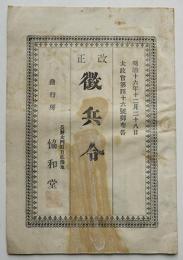 明治十六年十二月二十八日
太政官第四十六號御布告
改正
徴兵令
發行所
協和堂